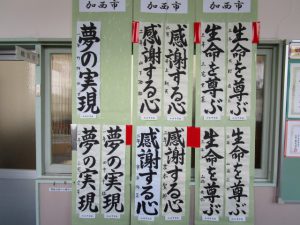 加西市
加西市
加西市
夢の実現
感謝する心
感謝する心
生命を尊ぶ
生命を尊ぶ
夢の実現
夢の実現
感謝する心
感謝する心
生命を尊ぶ
生命を尊ぶ